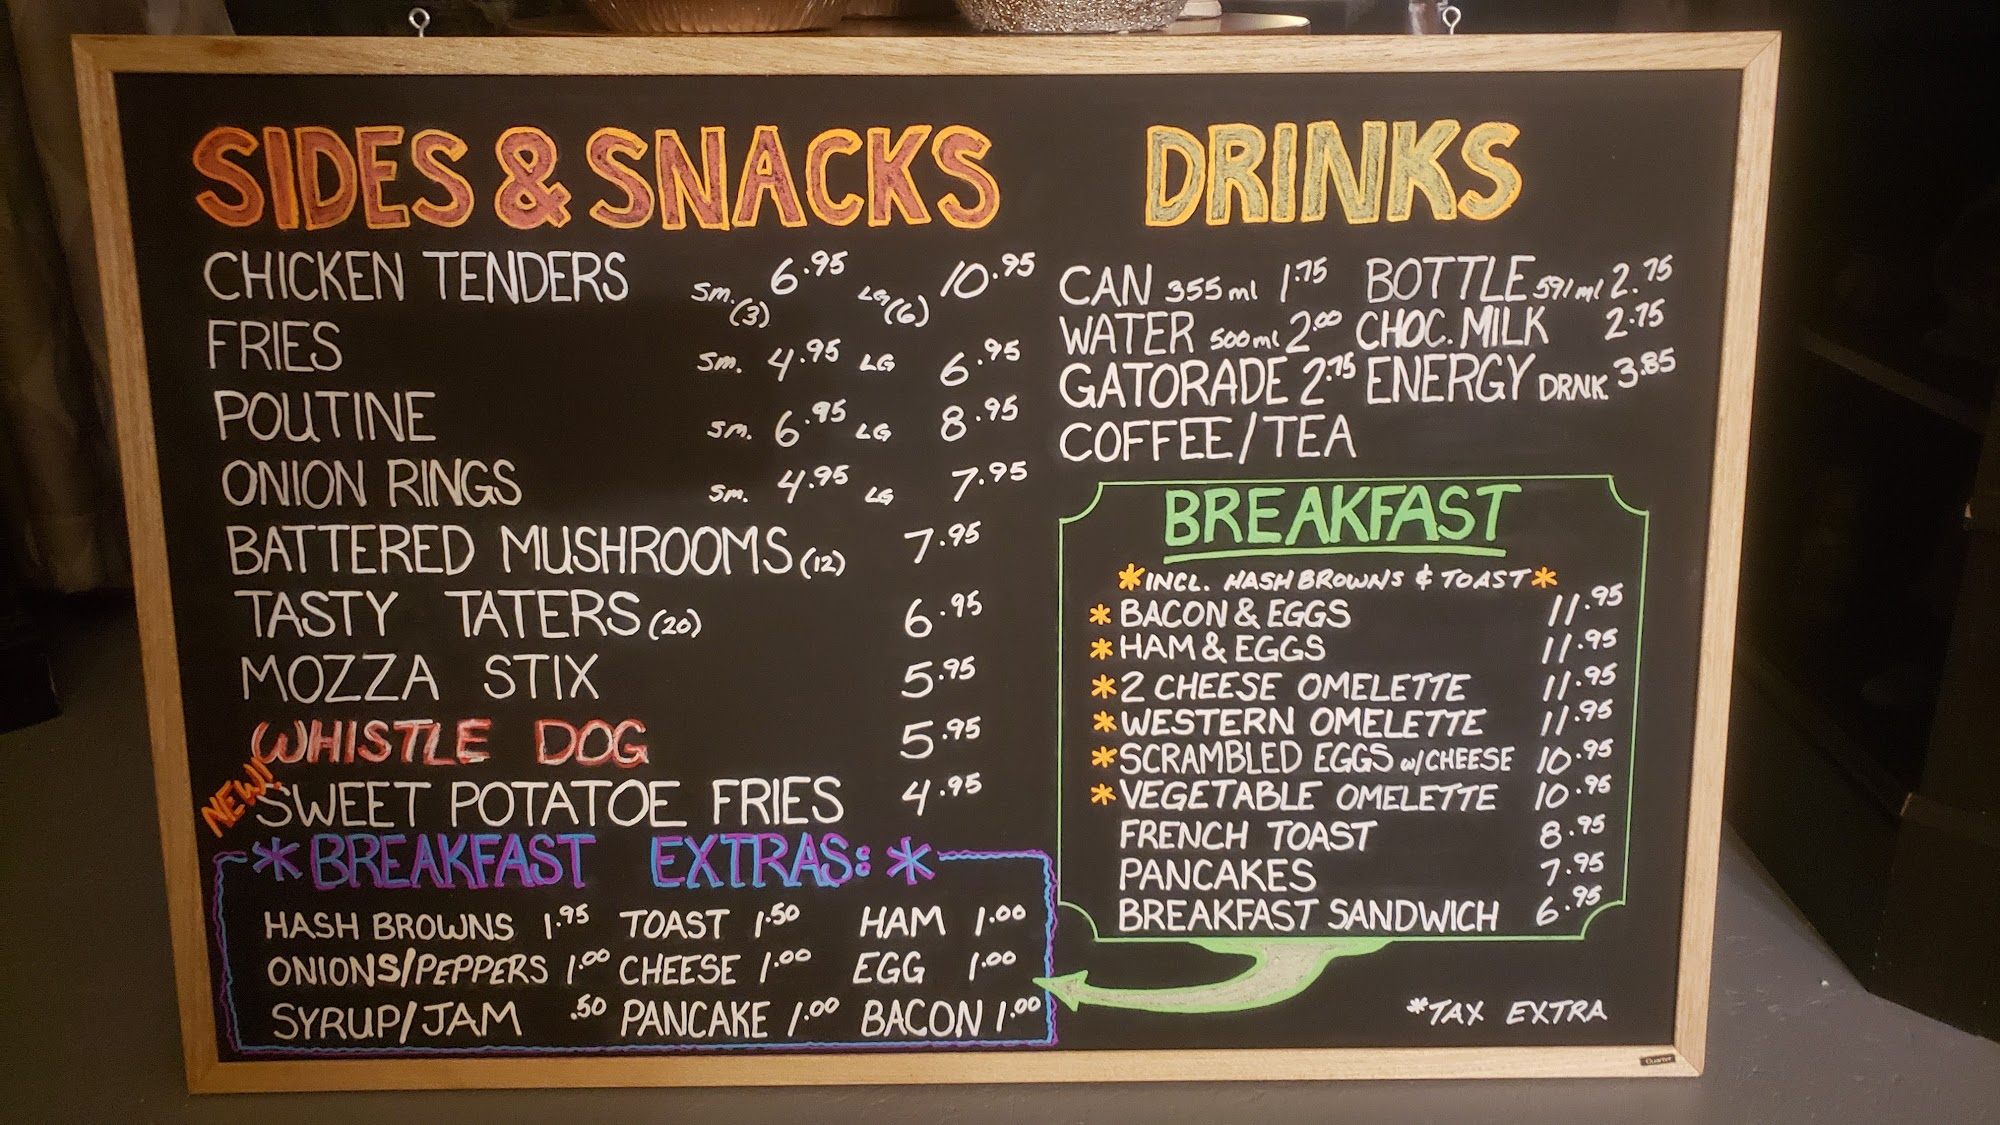 SIDES & SNACKS
CHICKEN TENDERS Sm. (3) 6.95 LG (6) 10.95
FRIES Sm. 4.95 LG 6.95
POUTINE Sm. 6.95 LG 8.95
ONION RINGS Sm. 4.95 LG 7.95
BATTERED MUSHROOMS (12) 7.95
TASTY TATERS (20) 6.95
MOZZA STIX 5.95
WHISTLE DOG 5.95
NEW! SWEET POTATOE FRIES 4.95
*BREAKFAST EXTRAS:*
HASH BROWNS 1.95 TOAST 1.50 HAM 1.00
ONIONS/PEPPERS 1.00 CHEESE 1.00 EGG 1.00
SYRUP/JAM .50 PANCAKE 1.00 BACON 1.00
DRINKS
CAN 355ml 1.75 BOTTLE 591ml 2.75
WATER 500ml 2.00 CHOC. MILK 2.75
GATORADE 2.75 ENERGY DRNK. 3.85
COFFEE/TEA
BREAKFAST
*INCL. HASHBROWNS & TOAST*
*BACON & EGGS 11.95
*HAM & EGGS 11.95
*2 CHEESE OMELETTE 11.95
*WESTERN OMELETTE 11.95
*SCRAMBLED EGGS w/CHEESE 10.95
*VEGETABLE OMELETTE 10.95
FRENCH TOAST 8.95
PANCAKES 7.95
BREAKFAST SANDWICH 6.95
*TAX EXTRA
Quartet